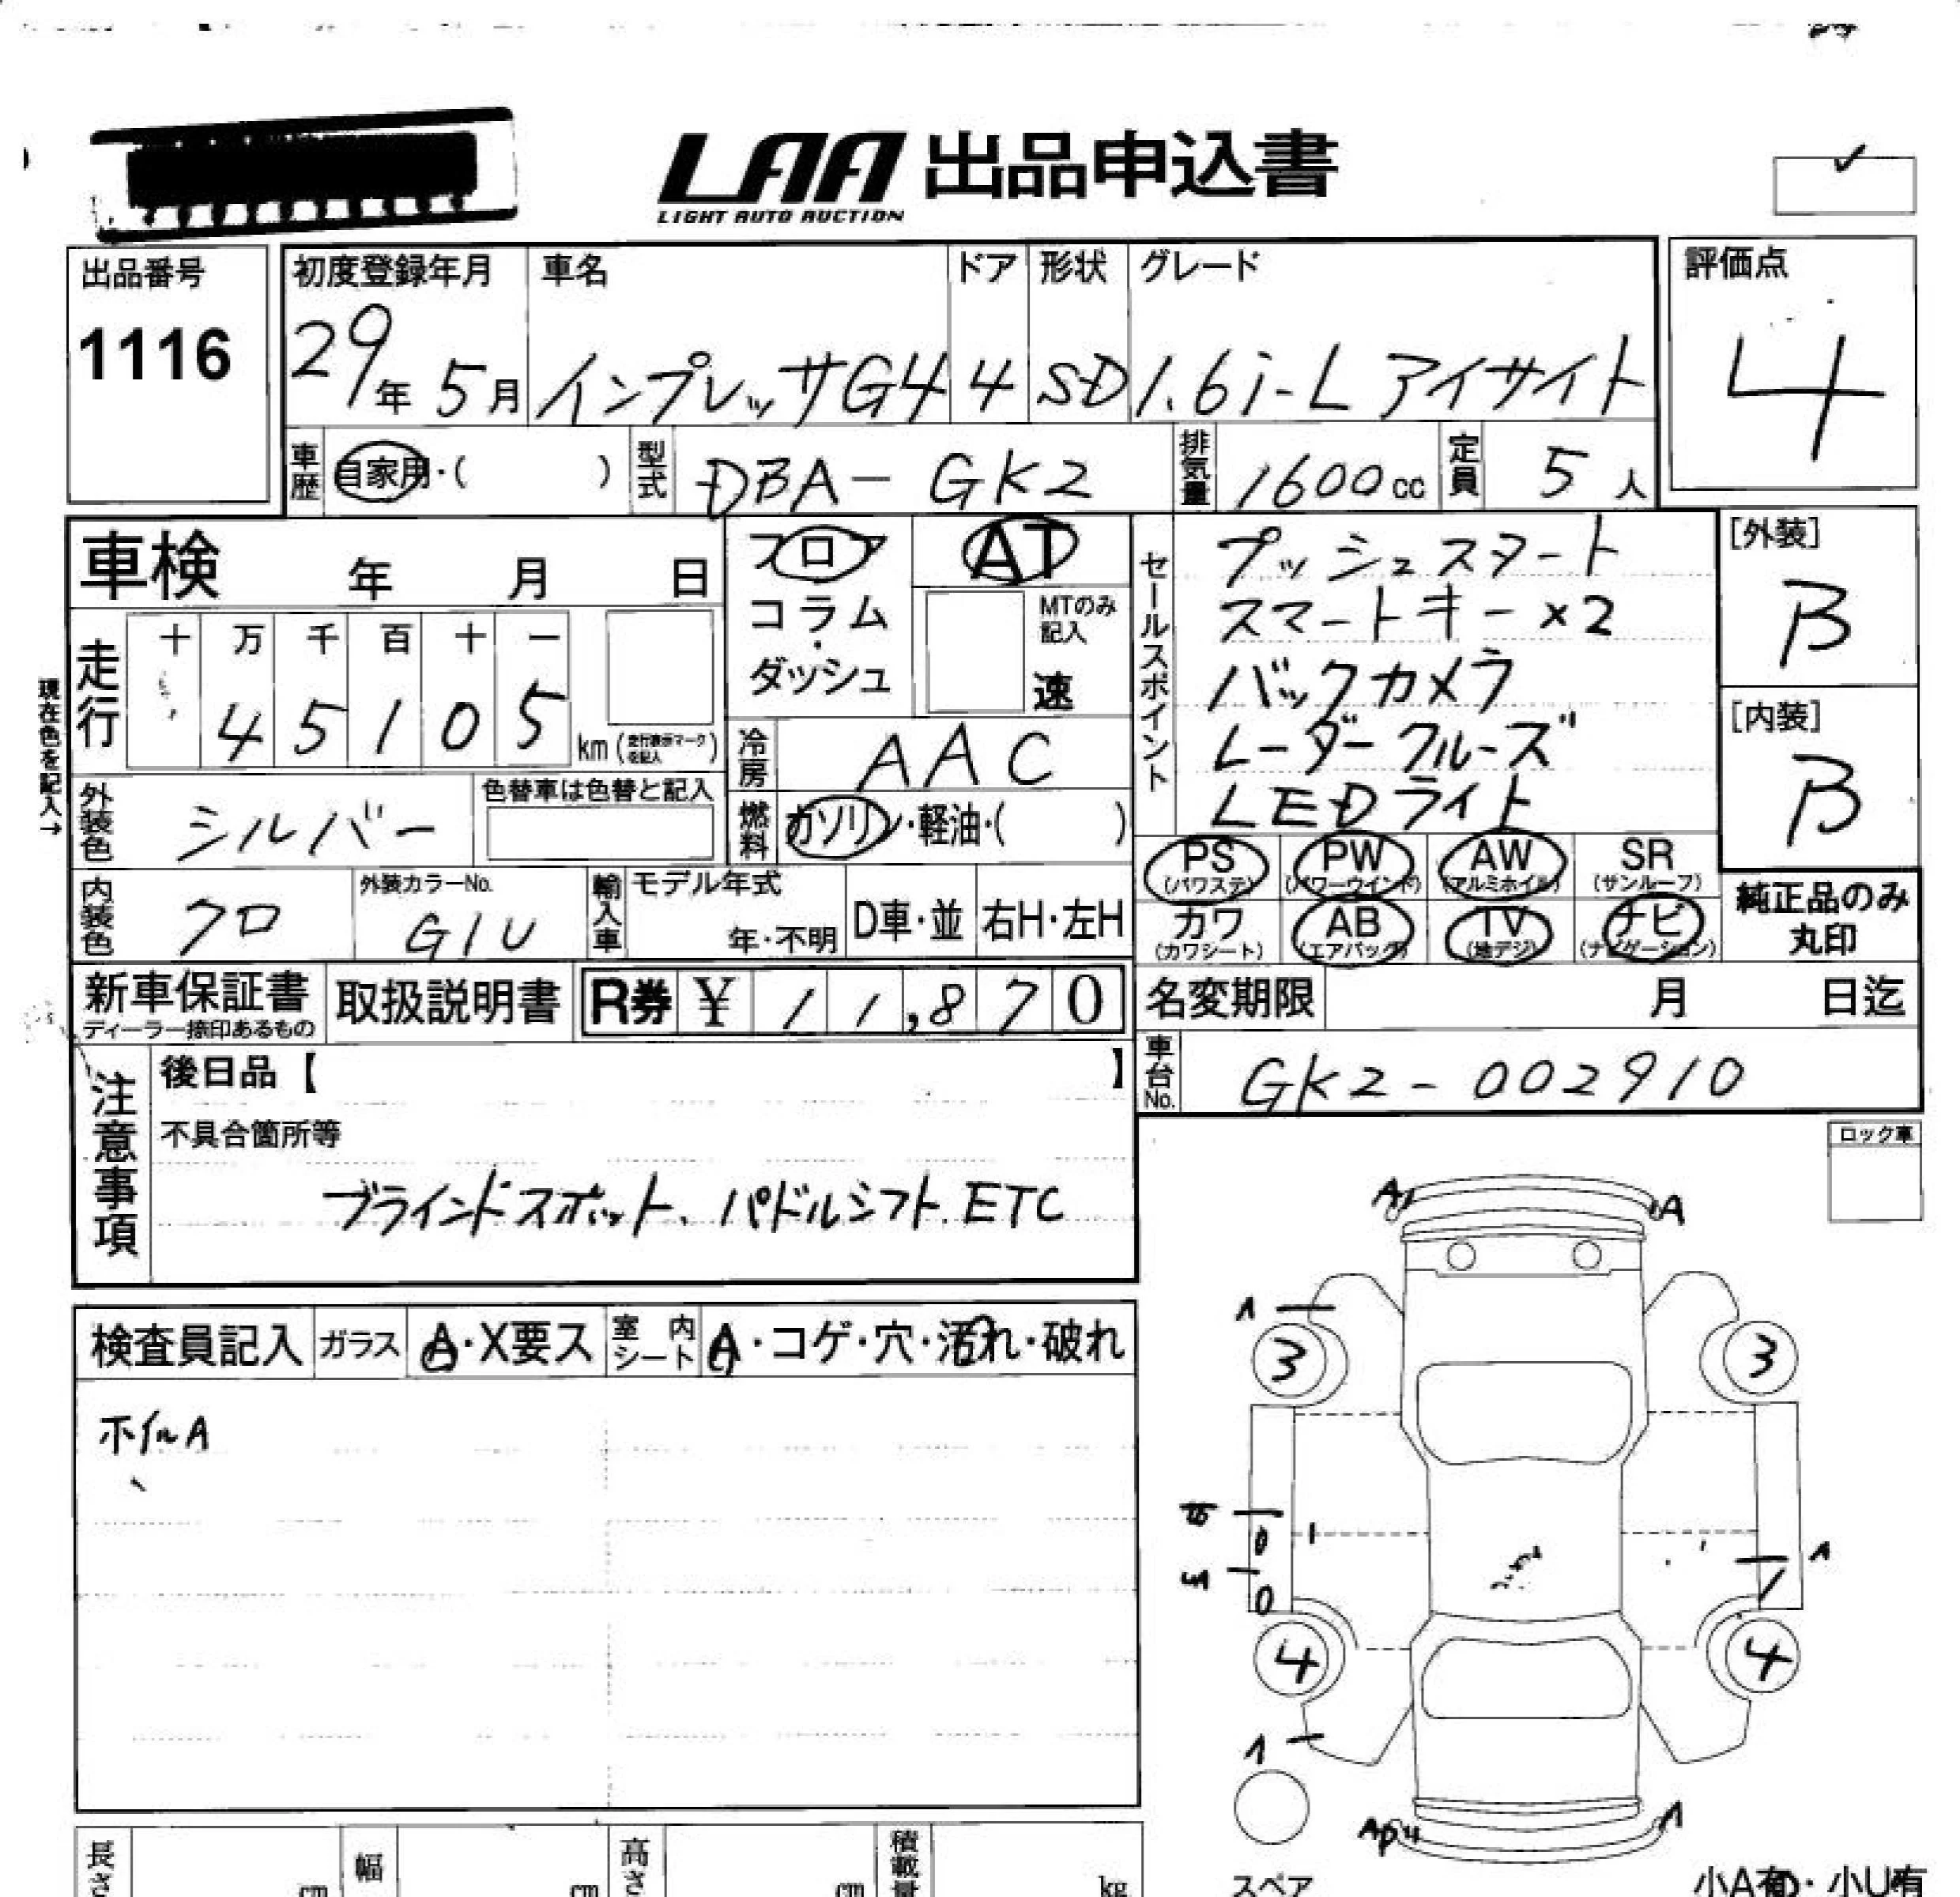 LAA 出品申込書
LIGHT AUTO AUCTION
出品番号
1116
初度登録年月 車名 ドア 形状 グレード
29年 5月 インプレッサG4 4 SD 1.6i-L アイサイト
評価点
4
車歴 自家用・( ) 型式 DBA-GK2 排気量 1600cc 定員 5人
車検 年 月 日
走行 十 万 千 百 十 一
45105 km (走行表示マークを記入)
現在色を記入→
フロア AT
コラム・ MTのみ記入
ダッシュ 速
冷房 AAC
燃料 ガソリン・軽油・( )
外装色 シルバー 色替車は色替と記入
内装色 クロ 外装カラーNo. G1U 輸入車 モデル年式 年・不明 D車・並 右H・左H
セールスポイント
プッシュスタート
スマートキー×2
バックカメラ
レーダークルーズ
LEDライト
[外装]
B
[内装]
B
PS (パワステ) PW (パワーウインド) AW (アルミホイル) SR (サンルーフ)
カワ (カワシート) AB (エアバック) TV (地デジ) ナビ (ナビゲーション)
純正品のみ
丸印
新車保証書 取扱説明書 R券 ¥ 11,870
ディーラー捺印あるもの
名変期限 月 日迄
車台No. GK2-002910
注意事項
後日品【 】
不具合箇所等
ブラインドスポット、パドルシフト、ETC
ロック車
検査員記入 ガラス A・X要ス 室内シート A・コゲ・穴・汚れ・破れ
ホイルA
A A
A
3 3
A
4 4
A
スペア
長さ cm 幅 cm 高さ cm 積載量 kg
小A有・小U有